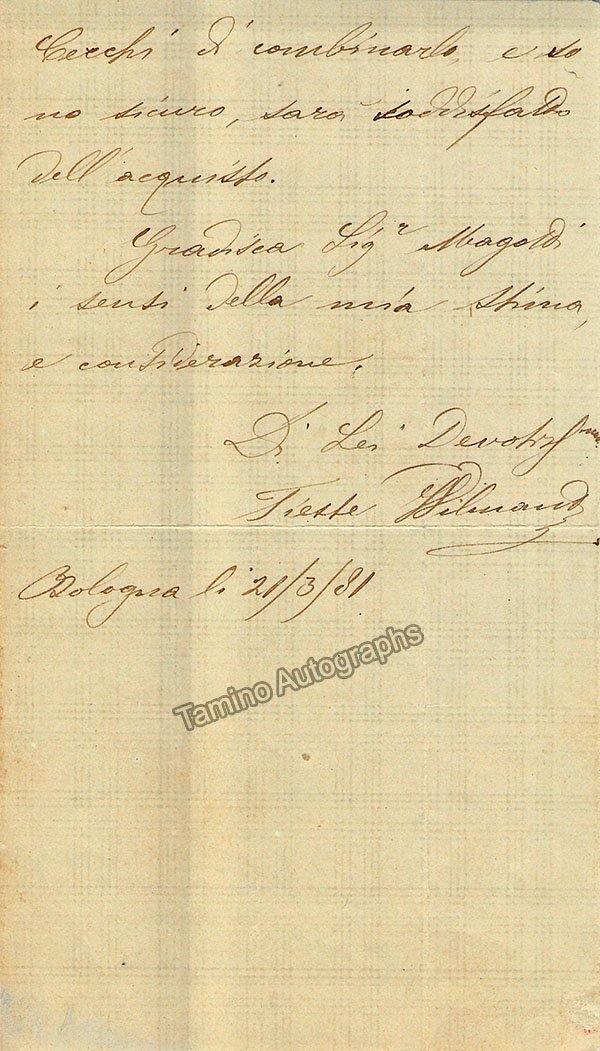 Cerchi di combinarlo, e so
no sicuro, sarà soddisfatto
dell'acquisto.
Gradisca Sigr Magotti
i sensi della mia stima,
e considerazione.
Di Lei Devotissmo
Tieste Wilmant
Bologna li 21/3/81
Tamino Autographs